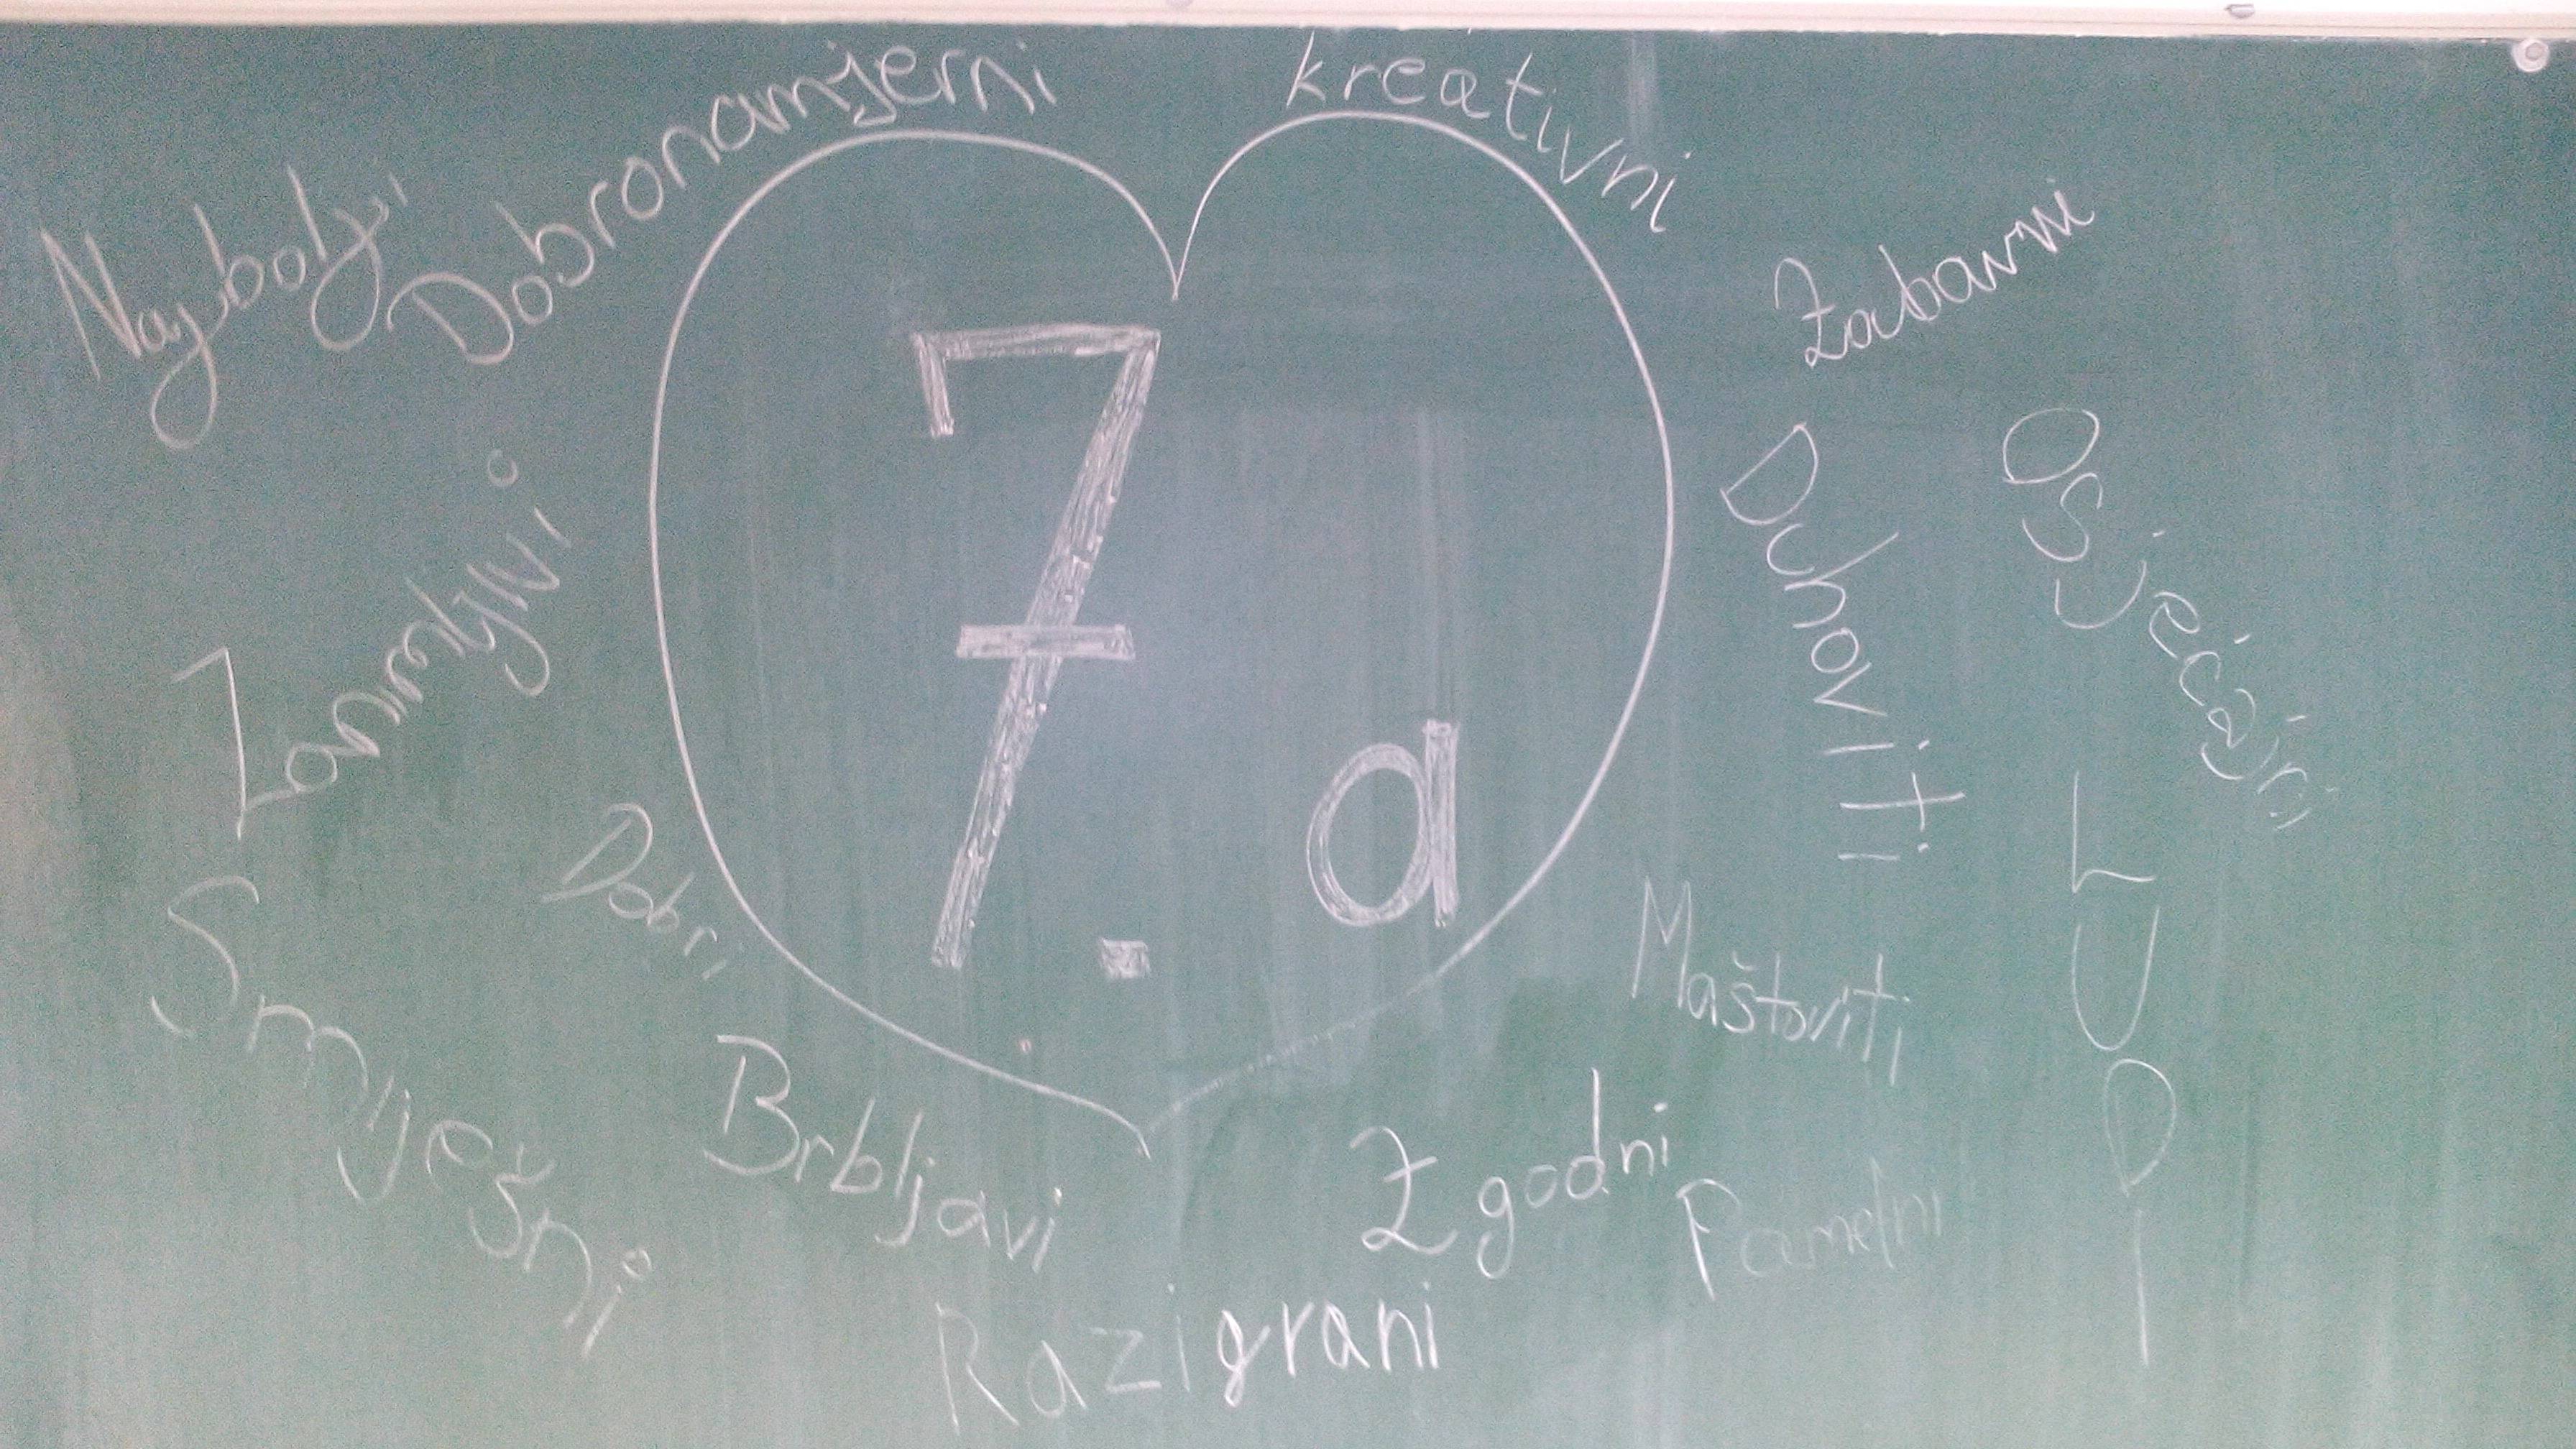 Najbolji
Dobronamjerni
kreativni
Zabavni
Osjećajni
Duhoviti
LUDI
Maštoviti
Pametni
Zgodni
Razigrani
Brbljavi
Dobri
Smiješni
Zanimljivi
7. a